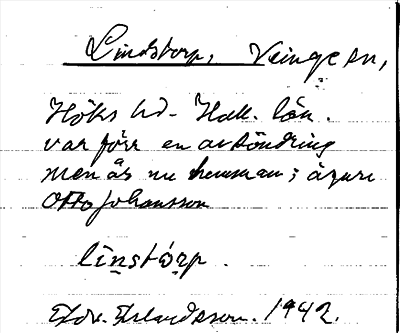 Lindstorp, Veinge sn,
Höks hd. Hall. län.
var förr en avsöndring
men är nu hemman; ägare
Otto Johansson
li̱nstɷ́r̤p.
Edv. Erlandsson. 1942.